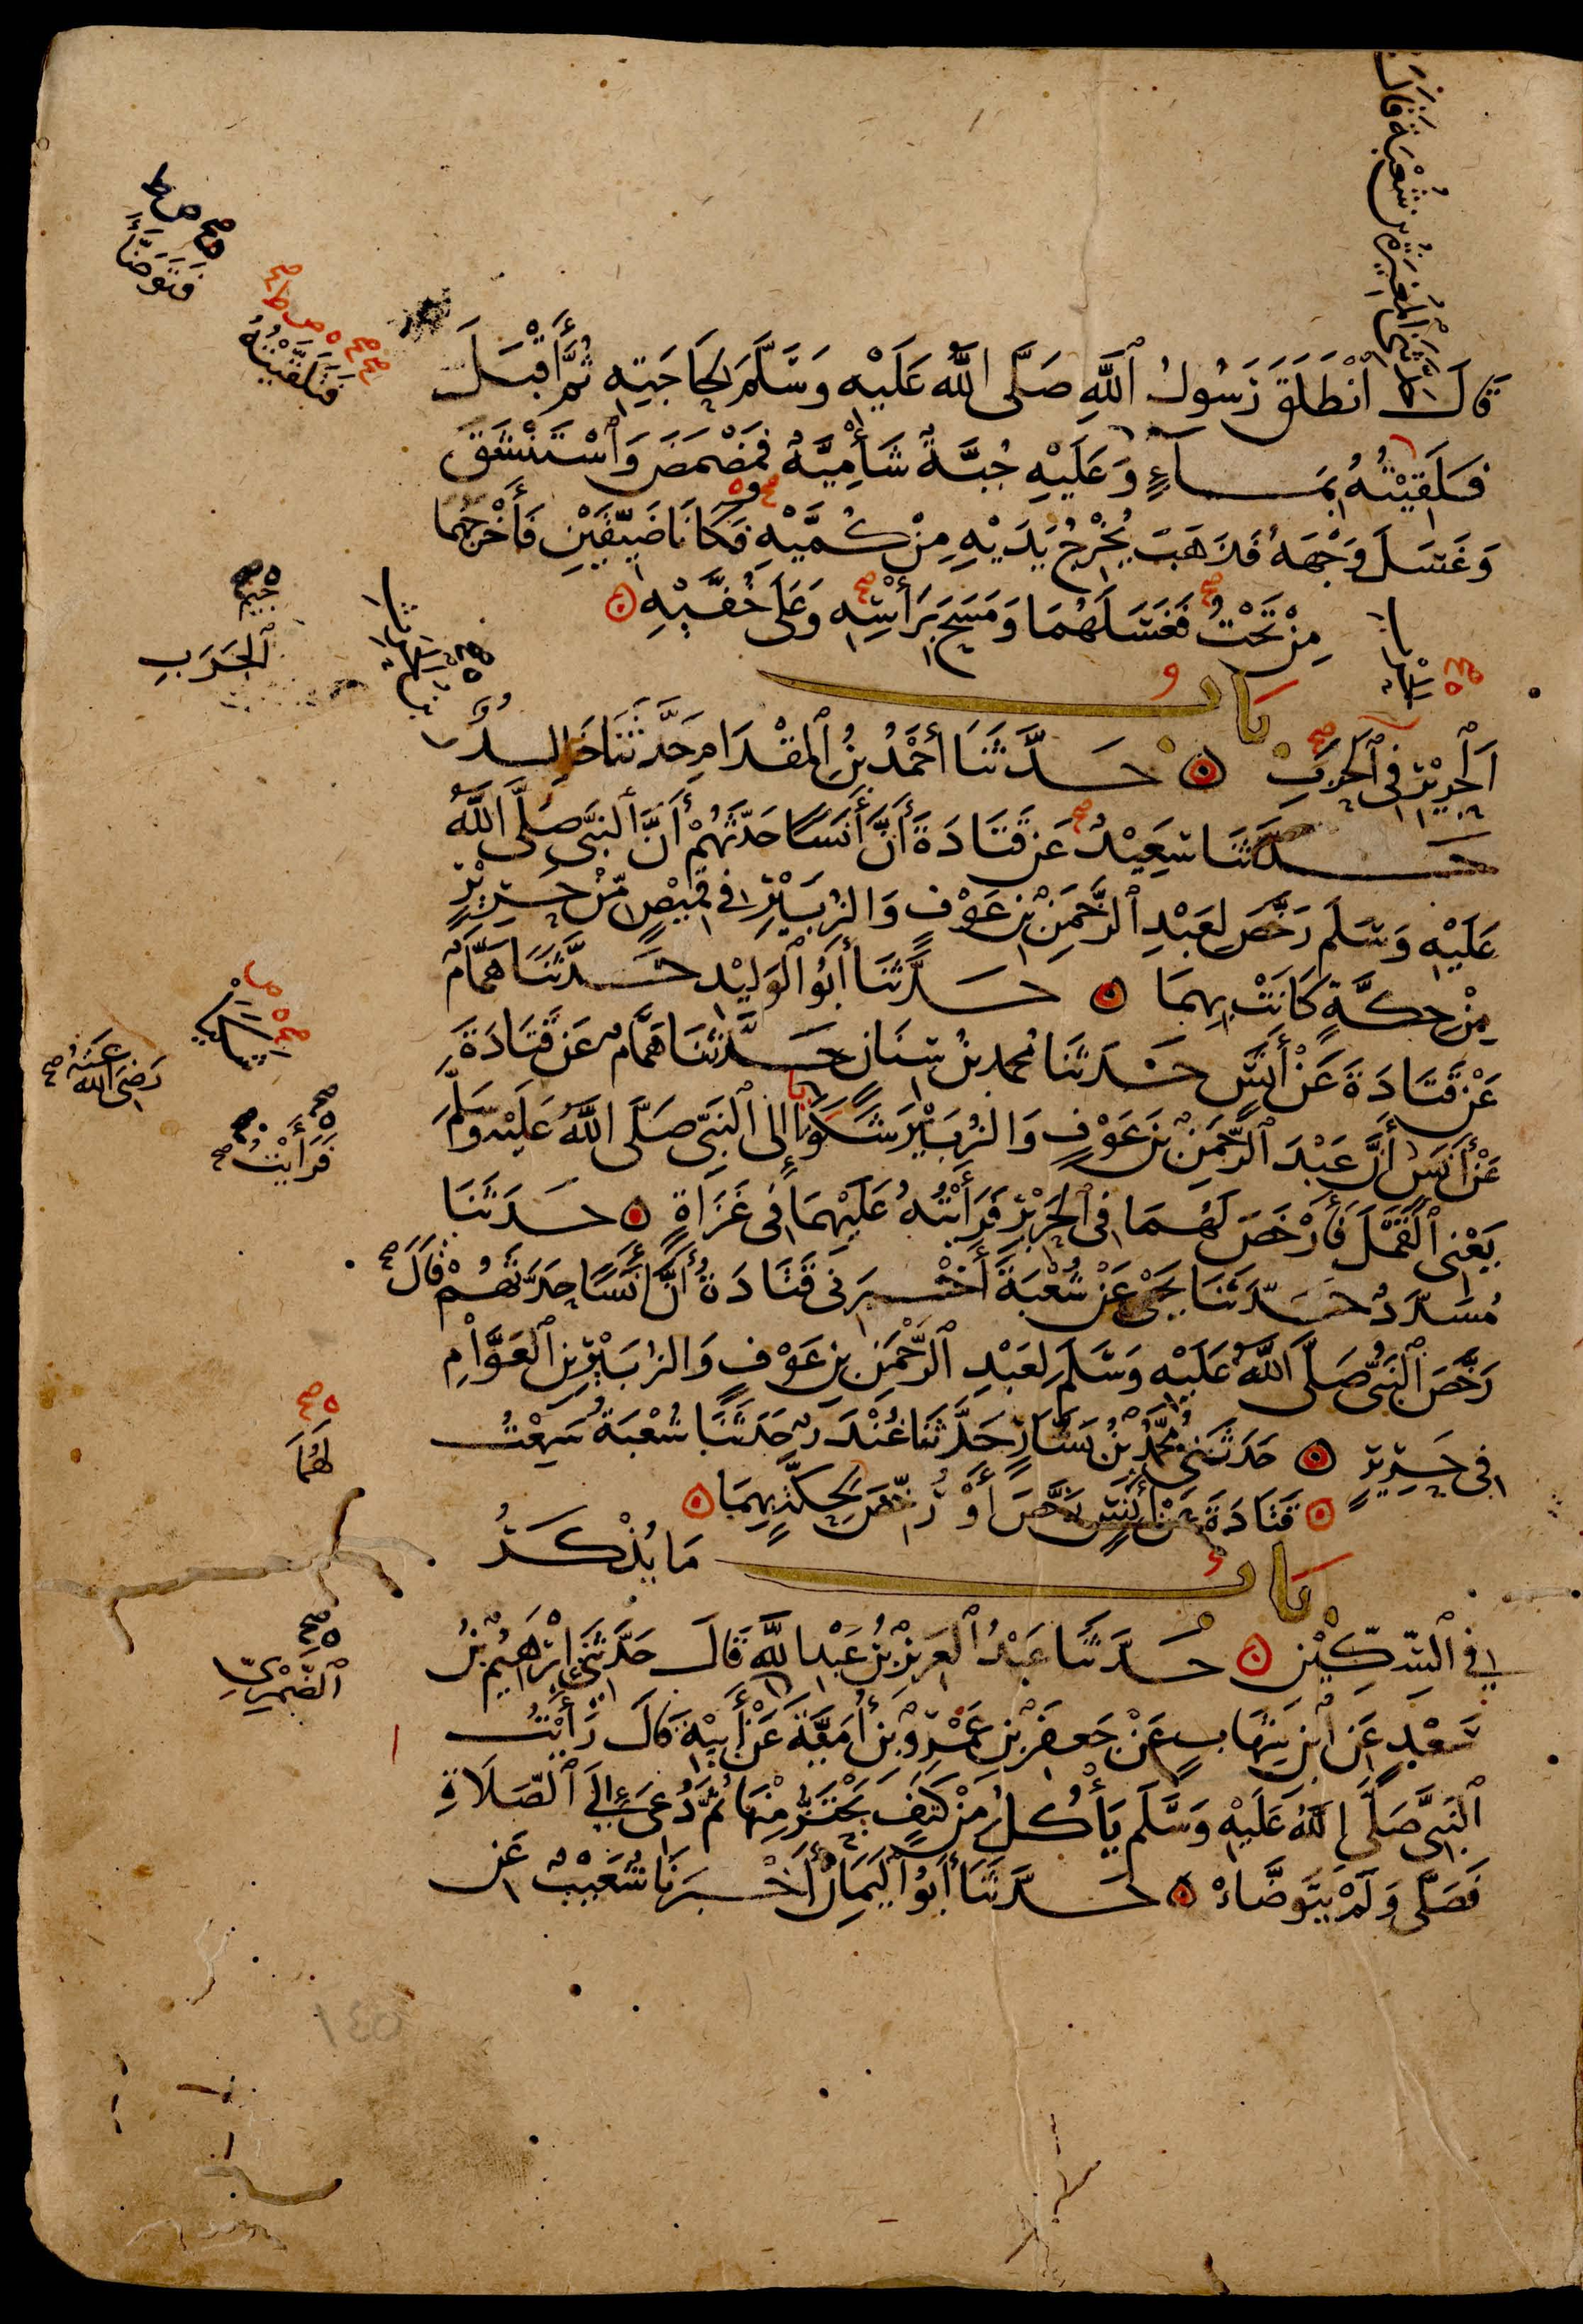 حَدَّثَنِي الْمُغِيرَةُ بْنُ شُعْبَةَ قَالَ
قَالَ انْطَلَقَ رَسُولُ ٱللَّهِ صَلَّى اللَّهُ عَلَيْهِ وَسَلَّمَ لِحَاجَتِهِ ثُمَّ أَقْبَلَ
فَلَقِيْتُهُ بِمَاءٍ وَعَلَيْهِ جُبَّةٌ شَأْمِيَّةٌ فَمَضْمَضَ وَٱسْتَنْشَقَ
وَغَسَلَ وَجْهَهُ فَذَهَبَ يُخْرِجُ يَدَيْهِ مِنْ كُمَّيْهِ فَكَانَا ضَيِّقَيْنِ فَأَخْرَجَهُمَا
مِنْ تَحْتُ فَغَسَلَهُمَا وَمَسَحَ بِرَأْسِهِ وَعَلَى خُفَّيْهِ
بَابُ
اَلْحَرِيْرِ فِي ٱلْحَرْبِ حَدَّثَنَا أَحْمَدُ بْنُ ٱلْمِقْدَامِ حَدَّثَنَا خَالِدٌ
حَدَّثَنَا سَعِيْدٌ عَنْ قَتَادَةَ أَنَّ أَنَسًا حَدَّثَهُمْ أَنَّ ٱلنَّبِيَّ صَلَّى ٱللَّهُ
عَلَيْهِ وَسَلَّمَ رَخَّصَ لِعَبْدِ ٱلرَّحْمَنِ بْنِ عَوْفٍ وَالزُّبَيْرِ فِي قَمِيْصٍ مِّنْ حَرِيْرٍ
مِنْ حِكَّةٍ كَانَتْ بِهِمَا حَدَّثَنَا أَبُو ٱلْوَلِيْدِ حَدَّثَنَا هَمَّامٌ
عَنْ قَتَادَةَ عَنْ أَنَسٍ حَدَّثَنَا مُحَمَّدُ بْنُ سِنَانٍ حَدَّثَنَا هَمَّامٌ عَنْ قَتَادَةَ
عَنْ أَنَسٍ أَنَّ عَبْدَ ٱلرَّحْمَنِ بْنَ عَوْفٍ وَالزُّبَيْرَ شَكَوَا إِلَى ٱلنَّبِيِّ صَلَّى ٱللَّهُ عَلَيْهِ وَسَلَّمَ
يَعْنِي ٱلْقَمْلَ فَأَرْخَصَ لَهُمَا فِي ٱلْحَرِيْرِ فَرَأَيْتُهُ عَلَيْهِمَا فِي غَزَاةٍ حَدَّثَنَا
مُسَدَّدٌ حَدَّثَنَا يَحْيَى عَنْ شُعْبَةَ أَخْبَرَنِي قَتَادَةُ أَنَّ أَنَسًا حَدَّثَهُمْ قَالَ
رَخَّصَ ٱلنَّبِيُّ صَلَّى ٱللَّهُ عَلَيْهِ وَسَلَّمَ لِعَبْدِ ٱلرَّحْمَنِ بْنِ عَوْفٍ وَالزُّبَيْرِ بْنِ ٱلْعَوَّامِ
فِي حَرِيْرٍ حَدَّثَنِي مُحَمَّدُ بْنُ بَشَّارٍ حَدَّثَنَا غُنْدَرٌ حَدَّثَنَا شُعْبَةُ سَمِعْتُ
قَتَادَةَ عَنْ أَنَسٍ رَخَّصَ أَوْ رُخِّصَ لِحِكَّةٍ بِهِمَا
بَابُ مَا يُذْكَرُ
فِي ٱلسِّكِّيْنِ حَدَّثَنَا عَبْدُ ٱلْعَزِيْزِ بْنُ عَبْدِ اللَّهِ قَالَ حَدَّثَنِي إِبْرَاهِيْمُ بْنُ
سَعْدٍ عَنِ ابْنِ شِهَابٍ عَنْ جَعْفَرِ بْنِ عَمْرِو بْنِ أُمَيَّةَ عَنْ أَبِيْهِ قَالَ رَأَيْتُ
ٱلنَّبِيَّ صَلَّى ٱللَّهُ عَلَيْهِ وَسَلَّمَ يَأْكُلُ مِنْ كَتِفٍ يَحْتَزُّ مِنْهَا ثُمَّ دُعِيَ إِلَى ٱلصَّلَاةِ
فَصَلَّى وَلَمْ يَتَوَضَّأْ حَدَّثَنَا أَبُو ٱلْيَمَانِ أَخْبَرَنَا شُعَيْبٌ عَنِ
فَتَوَضَّأَ
فَتَلَقَّيْتُهُ
ٱلْجَرَبِ
رَضِيَ اللَّهُ عَنْهُ
فَرَأَيْتُ
لَهُمَا
ٱلضَّمْرِيِّ
١٤٥